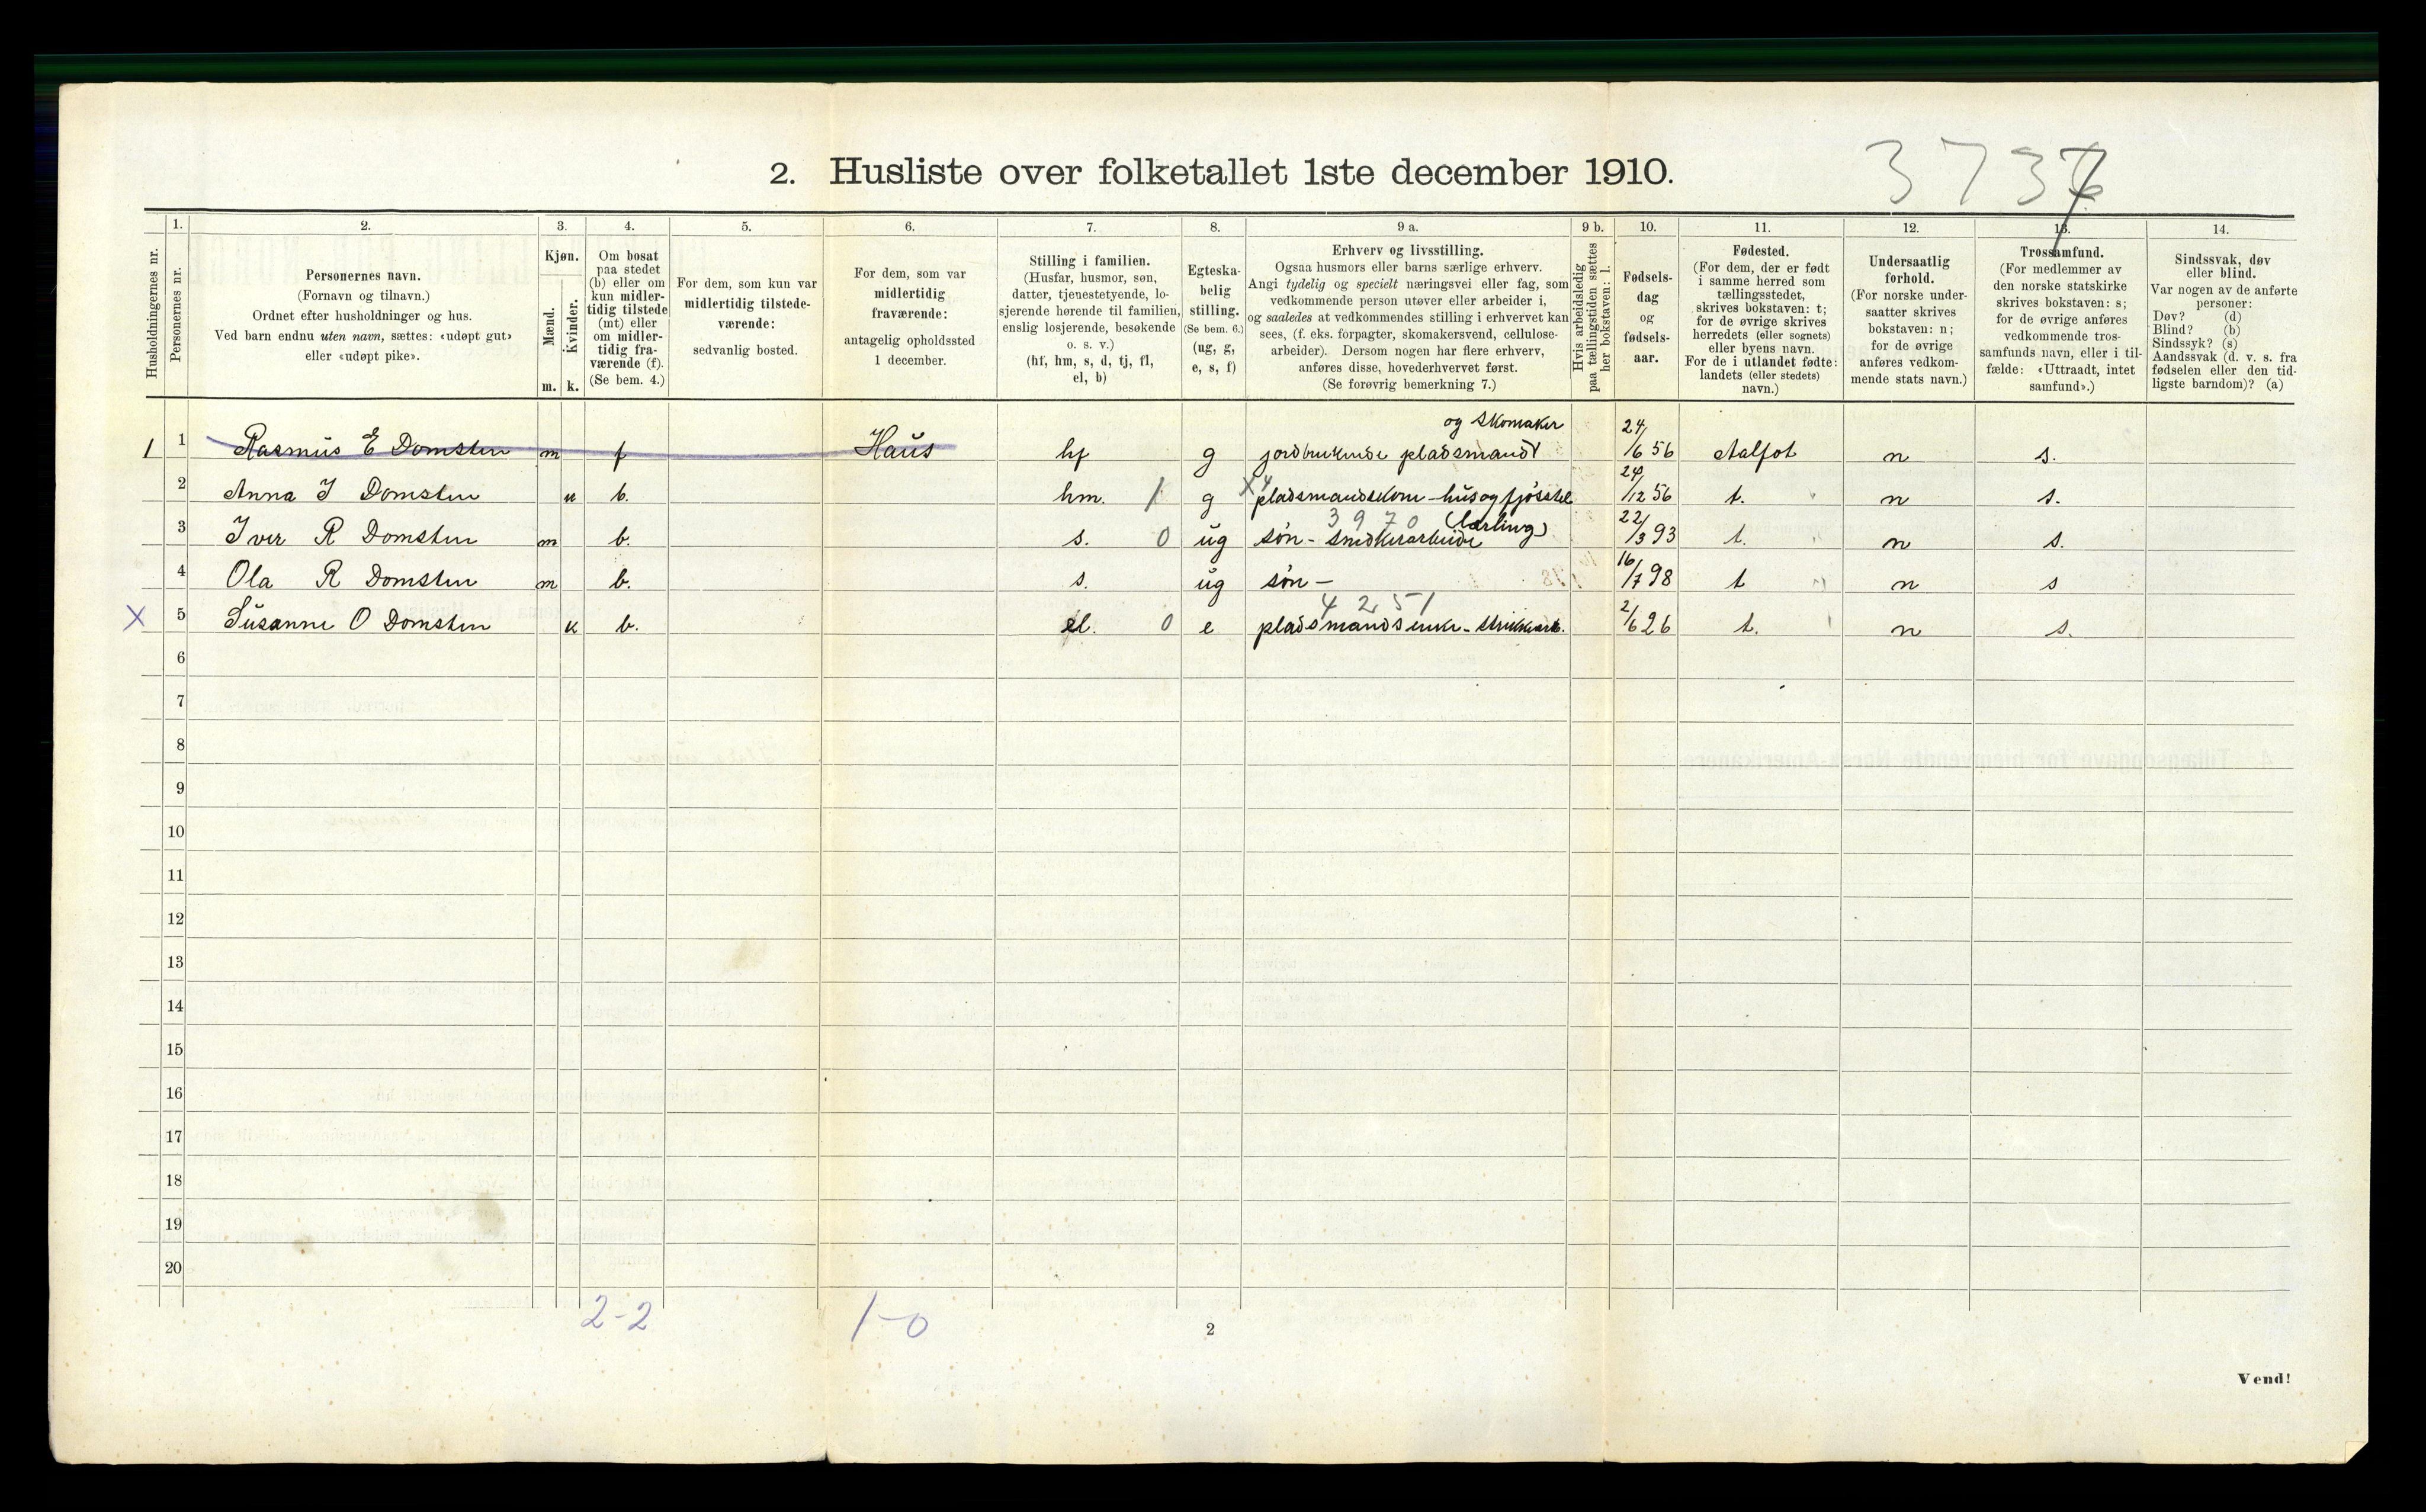 3 7 3 7
2. Husliste over folketallet 1ste december 1910.
Husholdningernes nr.
1.
Personernes nr.
2.
Personernes navn.
(Fornavn og tilnavn.)
Ordnet efter husholdninger og hus.
Ved barn endnu uten navn, sættes: «udøpt gut»
eller «udøpt pike».
3.
Kjøn.
Mænd.
Kvinder.
m. k.
4.
Om bosat
paa stedet
(b) eller om
kun midler-
tidig tilstede
(mt) eller
om midler-
tidig fra-
værende (f).
(Se bem. 4.)
5.
For dem, som kun var
midlertidig tilstede-
værende:
sedvanlig bosted.
6.
For dem, som var
midlertidig
fraværende:
antagelig opholdssted
1 december.
7.
Stilling i familien.
(Husfar, husmor, søn,
datter, tjenestetyende, lo-
sjerende hørende til familien,
enslig losjerende, besøkende
o. s. v.)
(hf, hm, s, d, tj, fl,
el, b)
8.
Egteska-
belig
stilling.
(Se bem. 6.)
(ug, g,
e, s, f)
9 a.
Erhverv og livsstilling.
Ogsaa husmors eller barns særlige erhverv.
Angi tydelig og specielt næringsvei eller fag, som
vedkommende person utøver eller arbeider i,
og saaledes at vedkommendes stilling i erhvervet kan
sees, (f. eks. forpagter, skomakersvend, cellulose-
arbeider). Dersom nogen har flere erhverv,
anføres disse, hovederhvervet først.
(Se forøvrig bemerkning 7.)
9 b.
Hvis arbeidsledig
paa tællingstiden sættes
her bokstaven: l.
10.
Fødsels-
dag
og
fødsels-
aar.
11.
Fødested.
(For dem, der er født
i samme herred som
tællingsstedet,
skrives bokstaven: t;
for de øvrige skrives
herredets (eller sognets)
eller byens navn.
For de i utlandet fødte:
landets (eller stedets)
navn.)
12.
Undersaatlig
forhold.
(For norske under-
saatter skrives
bokstaven: n;
for de øvrige
anføres vedkom-
mende stats navn.)
13.
Trossamfund.
(For medlemmer av
den norske statskirke
skrives bokstaven: s;
for de øvrige anføres
vedkommende tros-
samfunds navn, eller i til-
fælde: «Uttraadt, intet
samfund».)
14.
Sindssvak, døv
eller blind.
Var nogen av de anførte
personer:
Døv? (d)
Blind? (b)
Sindssyk? (s)
Aandssvak (d. v. s. fra
fødselen eller den tid-
ligste barndom)? (a)
og Skomaker
1 1 Rasmus E Domsten m f Haus hf g jordbrukende pladsmand 24/6 56 Aalfot n s.
2 Anna I Domsten k b. hm. 1 g X4 pladsmandskone - hus og fjøsstel 24/12 56 t. n s.
3 9 7 0 (lærling)
3 Iver R Domsten m b. s. 0 ug søn - 22/3 93 t. n s.
4 Ola R Domsten m b. s. ug søn - 16/7 98 t n s
4 2 5 1
X 5 Susanne O Domsten k b. el. 0 e pladsmands enke - 2/6 26 t. n s.
6
7
8
9
10
11
12
13
14
15
16
17
18
19
20
2-2 1-0
2
Vend!